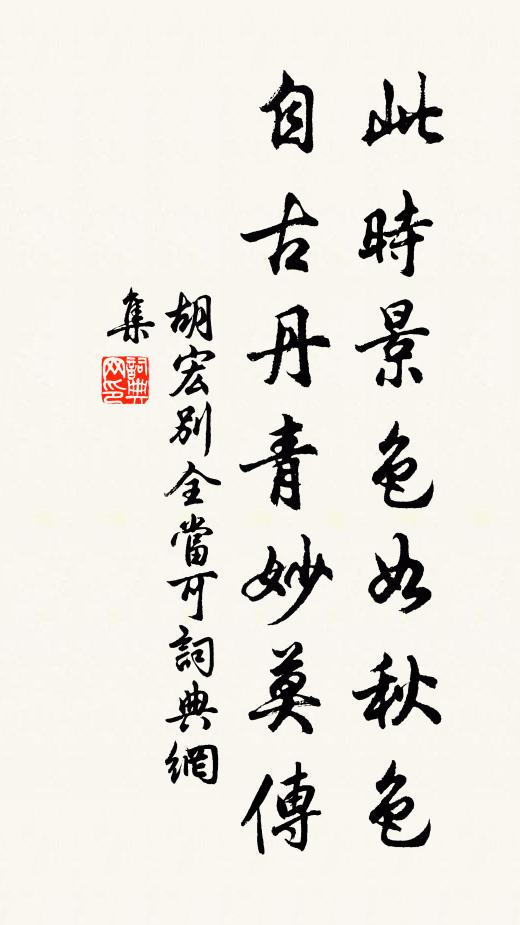 此時景色如秋色
自古丹青妙莫傳
胡宏別全當可詞典網
集
詞典
网印